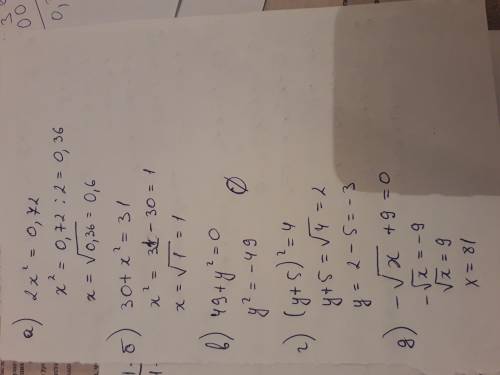 а) 2x² = 0,72
x² = 0,72 : 2 = 0,36
x = √0,36 = 0,6
б) 30 + x² = 31
x² = 31 - 30 = 1
x = √1 = 1
в) 49 + y² = 0
y² = -49 ∅
г) (y + 5)² = 4
y + 5 = √4 = 2
y = 2 - 5 = -3
д) -√x + 9 = 0
-√x = -9
√x = 9
x = 81